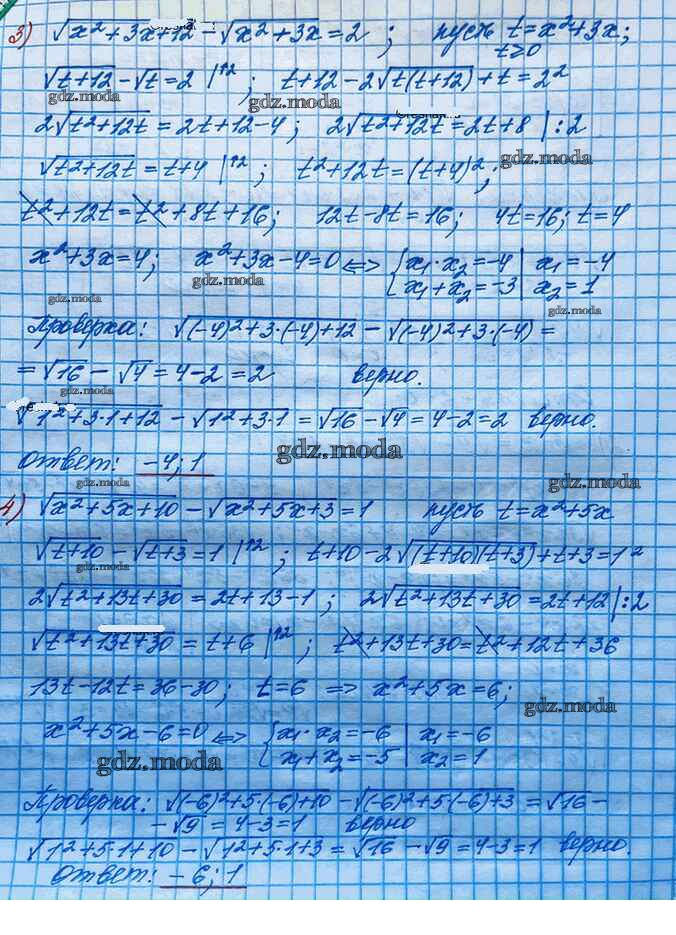 3) √(x²+3x+12) - √(x²+3x) = 2 ; пусть t=x²+3x;
t≥0
√(t+12) - √t = 2 |↑2 ; t+12-2√(t(t+12))+t=2²
gdz.moda
2√(t²+12t) = 2t+12-4 ; 2√(t²+12t) = 2t+8 |:2
gdz.moda
√(t²+12t) = t+4 |↑2 ; t²+12t=(t+4)²;
t²+12t=t²+8t+16; 12t-8t=16; 4t=16; t=4
x²+3x=4; x²+3x-4=0 <=> { x₁·x₂=-4 | x₁=-4
x₁+x₂=-3 | x₂=1
gdz.moda
gdz.moda
gdz.moda
Проверка: √((-4)²+3·(-4)+12) - √((-4)²+3·(-4)) =
= √16 - √4 = 4-2 = 2 верно.
gdz.moda
√(1²+3·1+12) - √(1²+3·1) = √16 - √4 = 4-2=2 верно.
gdz.moda
Ответ: -4; 1
gdz.moda
gdz.moda
4) √(x²+5x+10) - √(x²+5x+3) = 1 пусть t=x²+5x
√(t+10) - √(t+3) = 1 |↑2 ; t+10-2√((t+10)(t+3))+t+3=1²
gdz.moda
2√(t²+13t+30) = 2t+13-1 ; 2√(t²+13t+30) = 2t+12 |:2
√(t²+13t+30) = t+6 |↑2 ; t²+13t+30=t²+12t+36
13t-12t=36-30; t=6 => x²+5x=6;
gdz.moda
x²+5x-6=0 <=> { x₁·x₂=-6 | x₁=-6
x₁+x₂=-5 | x₂=1
gdz.moda
Проверка: √((-6)²+5·(-6)+10) - √((-6)²+5·(-6)+3) = √16 -
- √9 = 4-3=1 верно
√(1²+5·1+10) - √(1²+5·1+3) = √16 - √9 = 4-3=1 верно.
Ответ: -6; 1